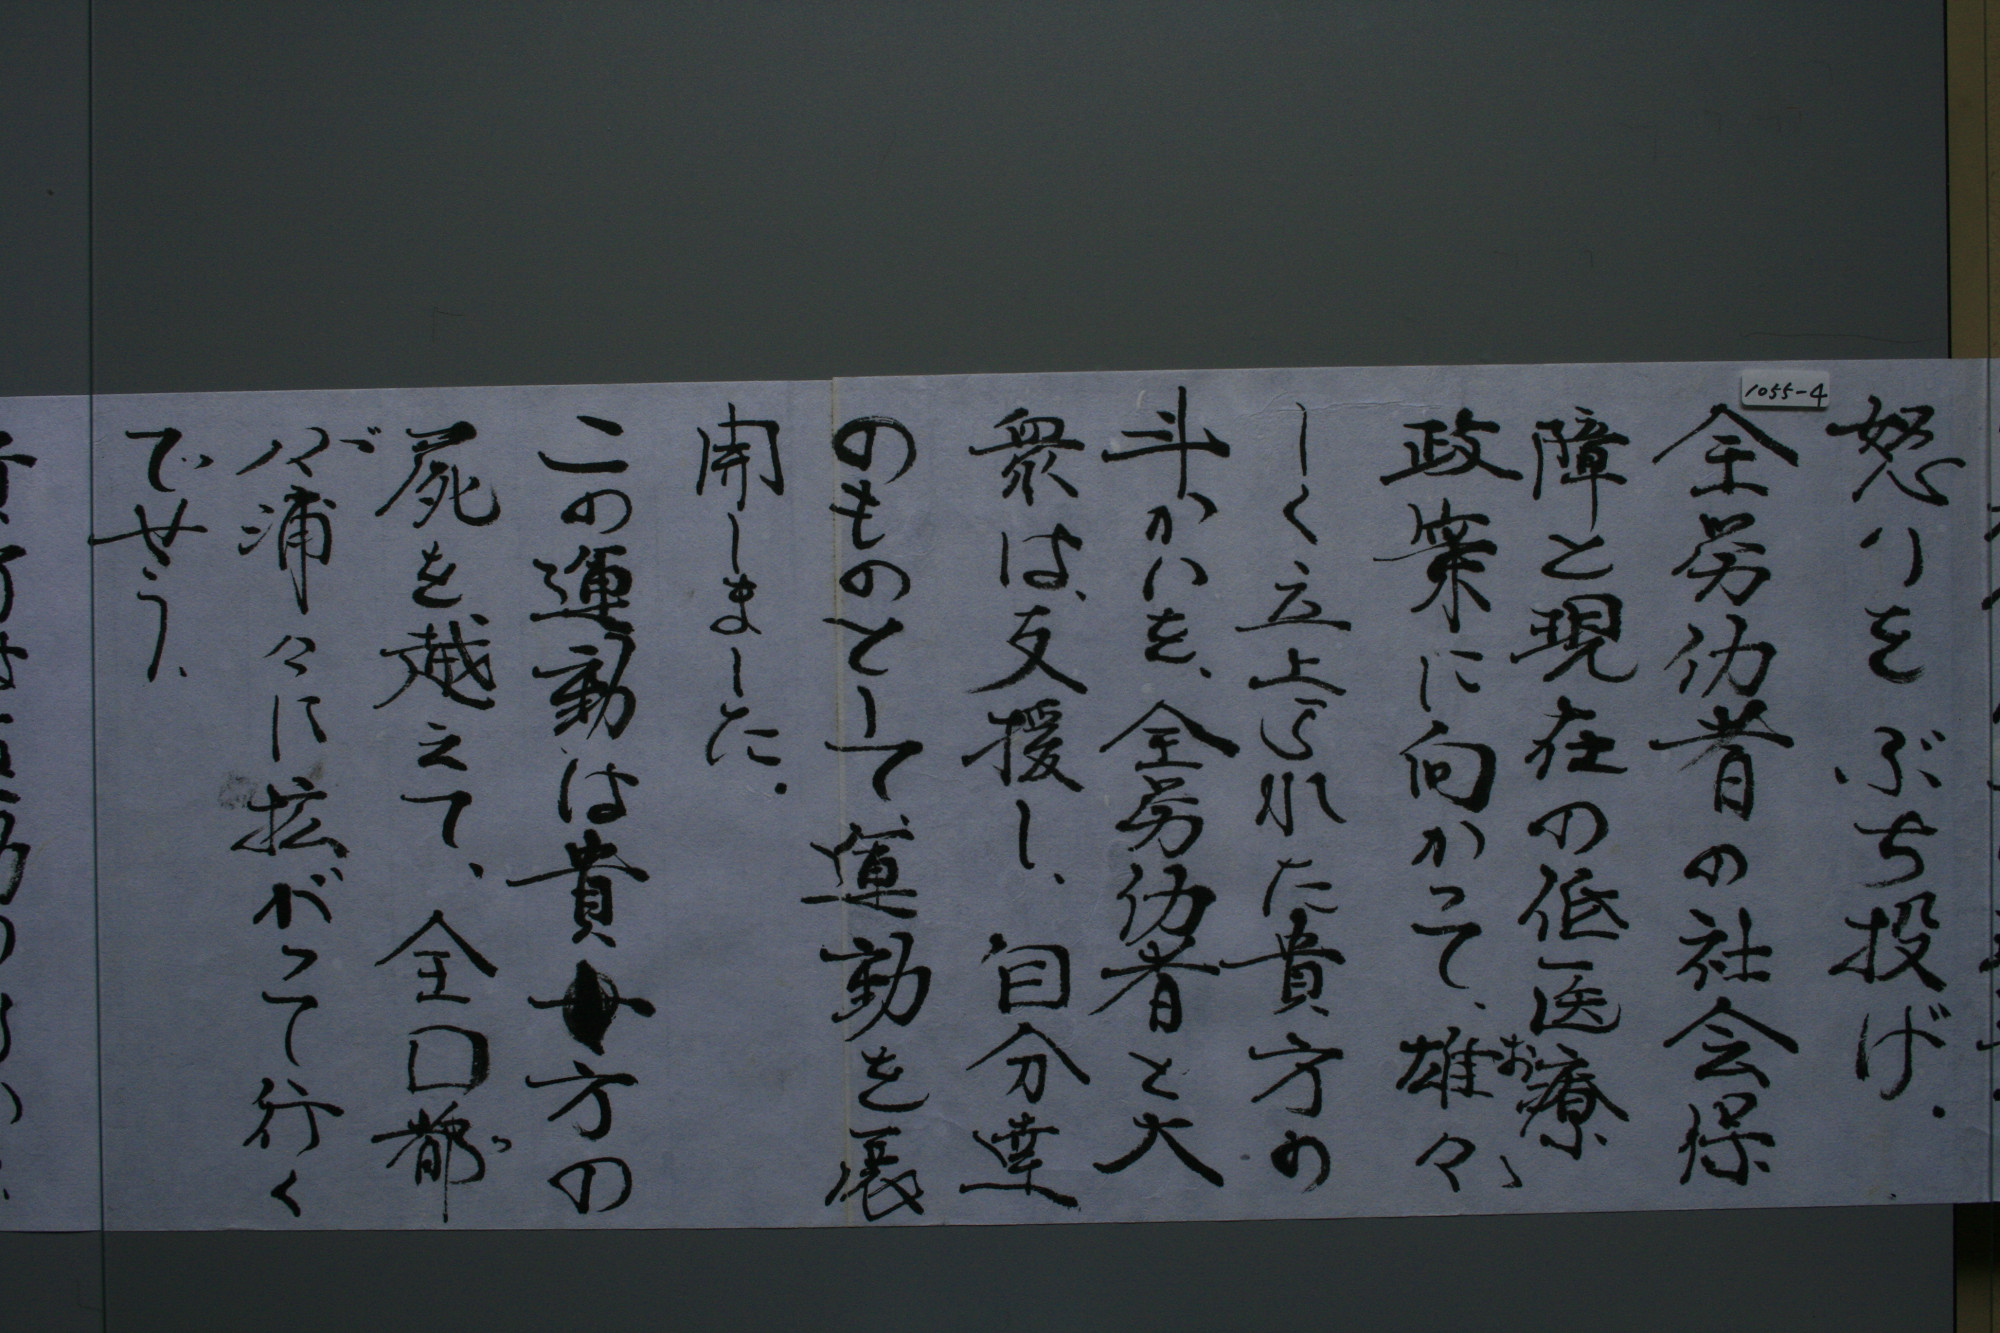 1055-4
怒りをぶち投げ.
全労仂者の社会保
障と現在の低医療
政策に向かって、雄々
しく立上られた貴方の
斗かいを、全労仂者と大
衆は、支援し、自分達
のものとして、運動を展
開しました.
この運動は貴女方の
屍を越えて、全口都
々浦々に拡がって行く
でせう、